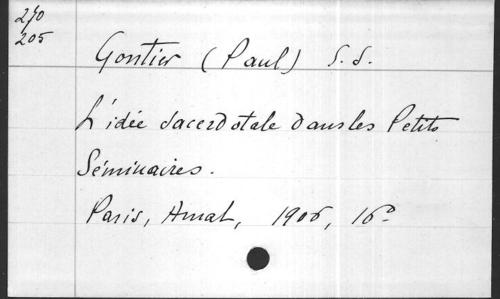 270
205
Gontier (Paul) S. S.
L'idée sacerdotale dans les Petits
Séminaires.
Paris, Amat, 1906, 16°